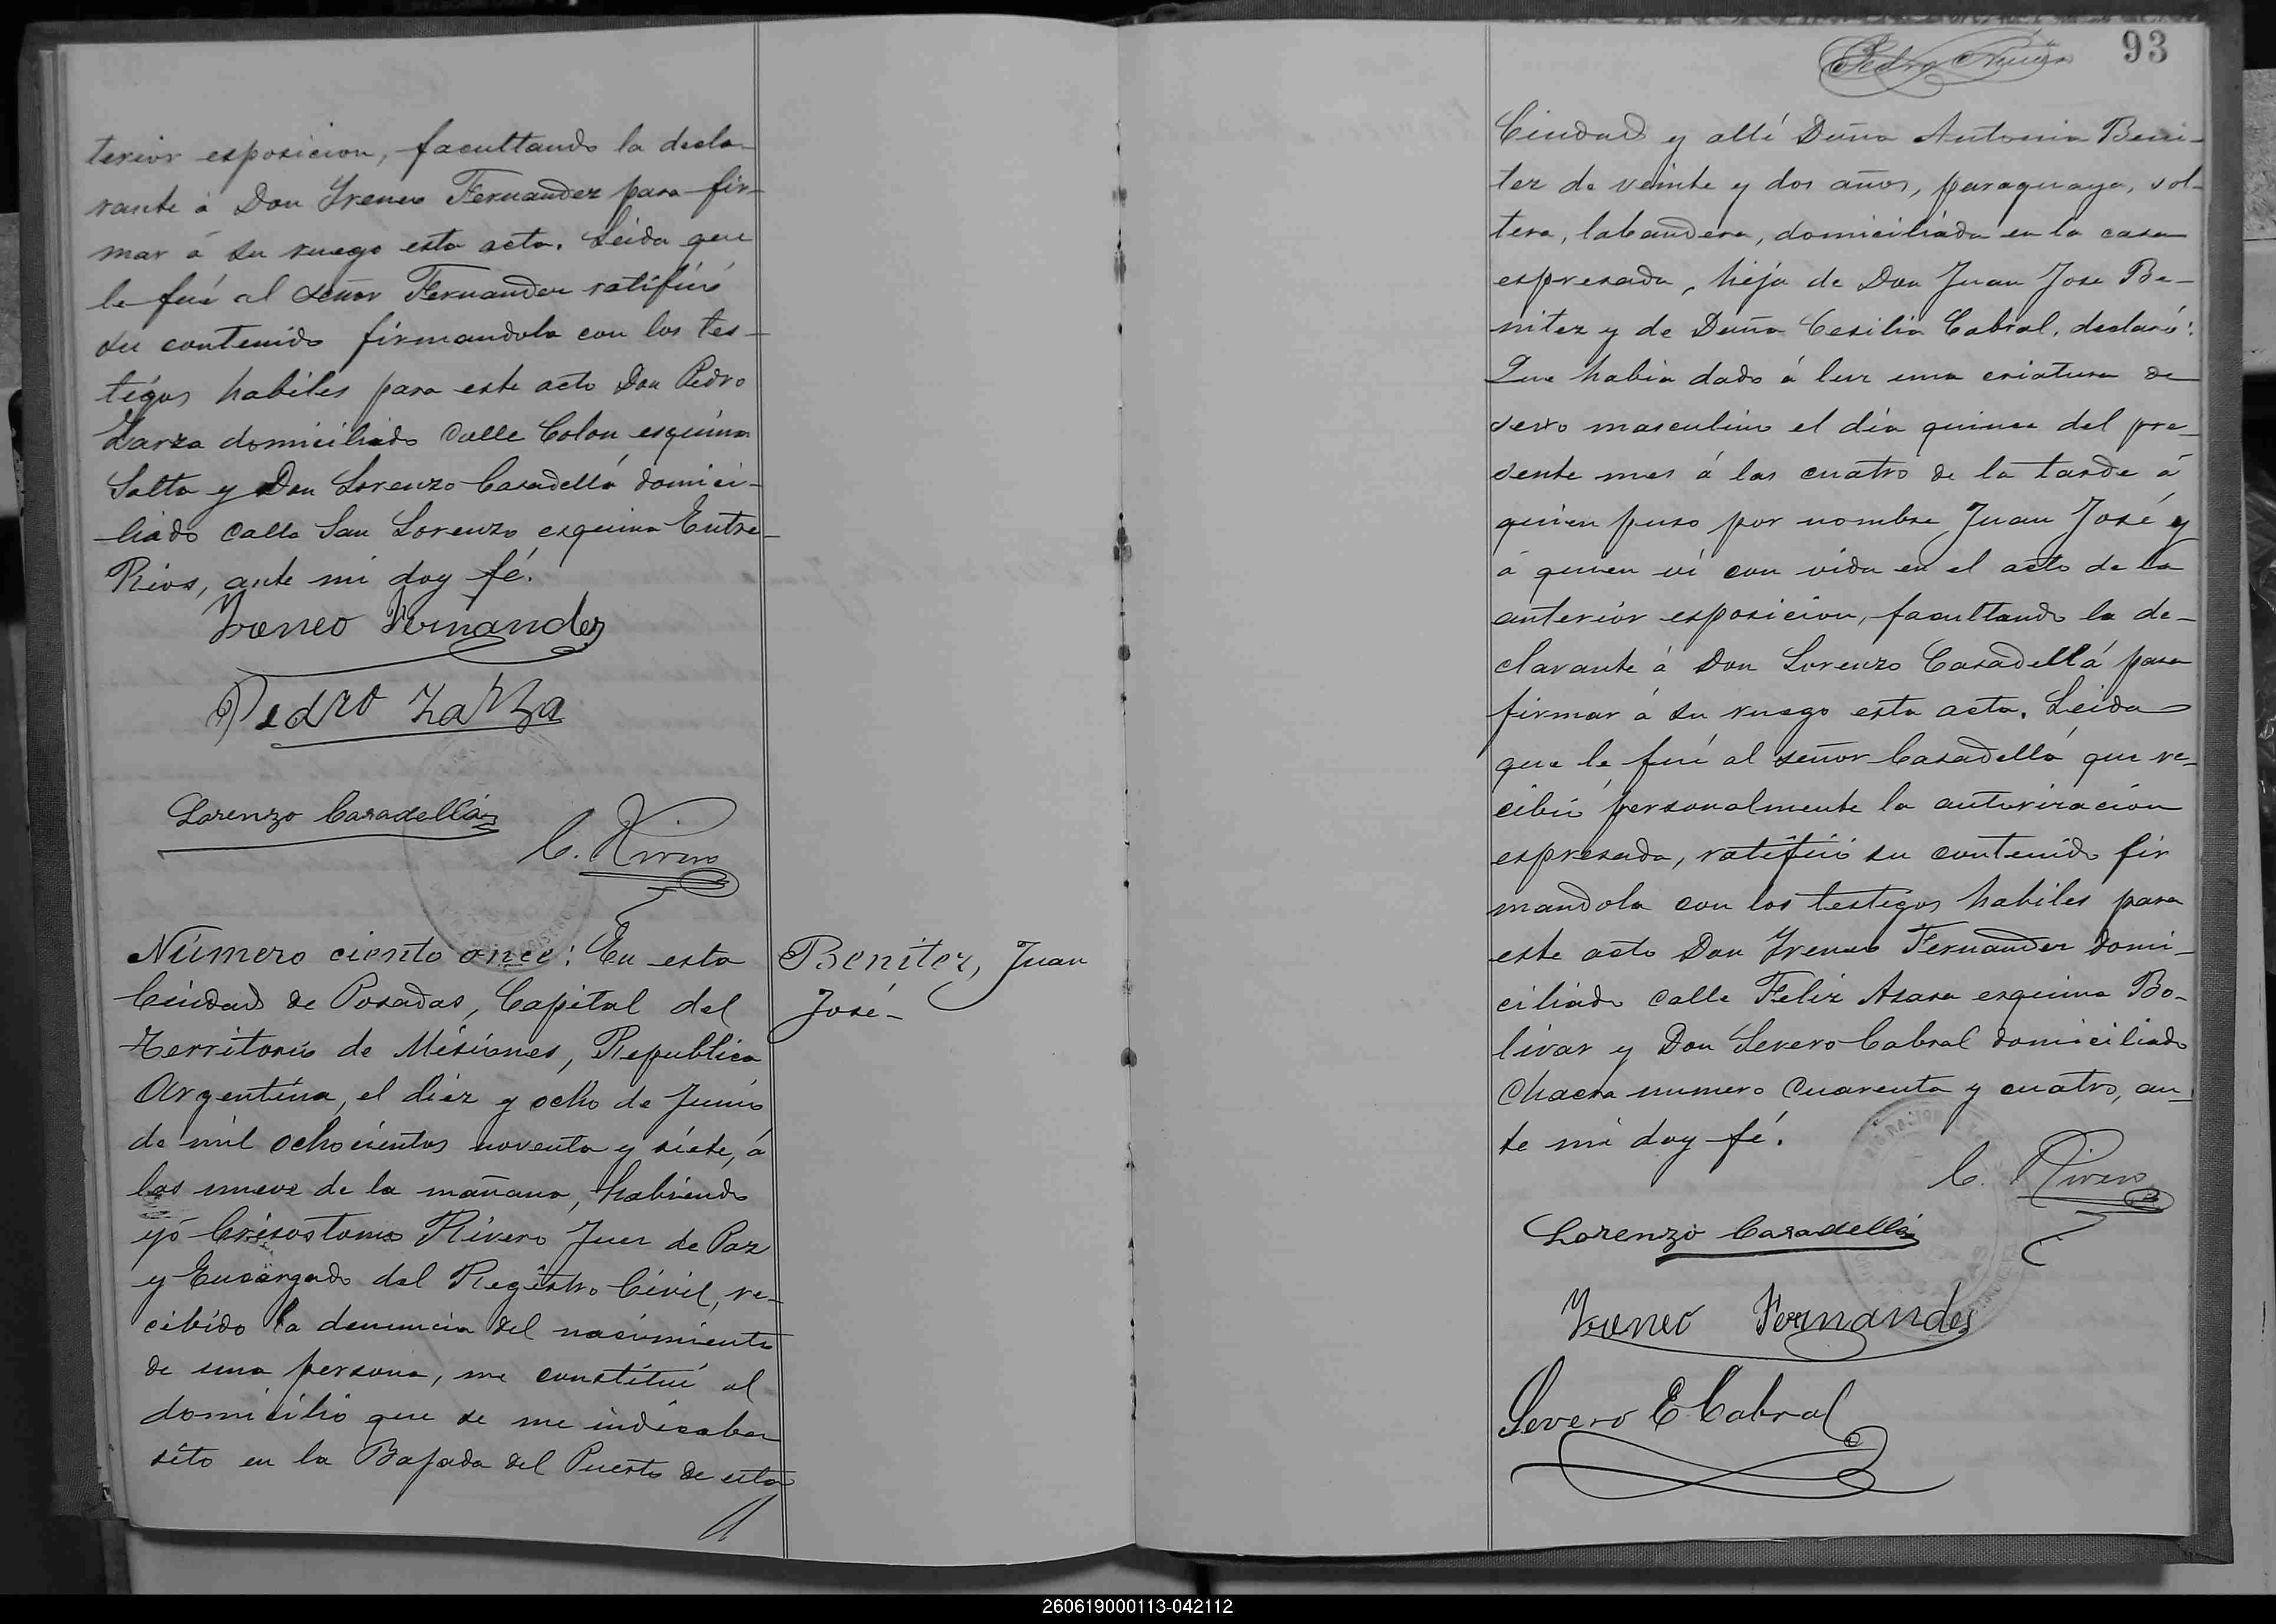 terior esposicion, facultando la decla-
rante á Don Yreneo Fernandez para fir-
mar á su ruego esta acta. Leida que
le fué al señor Fernandez ratificó
su contenido firmandola con los tes-
tigos habiles para este acto Don Pedro
Zarza domiciliado Calle Colon esquina
Salta y Don Lorenzo Casadellá domici-
liado Calle San Lorenzo esquina Entre-
Rios, ante mi doy fé.
Yreneo Fernandez
Pedro Zarza
Lorenzo Casadellá
C. Rivero
Número ciento once: En esta
Ciudad de Posadas, Capital del
Territorio de Misiones, Republica
Argentina, el diez y ocho de Junio
de mil ochocientos noventa y siete, á
las nueve de la mañana, habiendo
yó Crisostomo Rivero Juez de Paz
y Encargado del Registro Civil, re-
cibido la denuncia del nacimiento
de una persona, me constituí al
domicilio que se me indicaba
sito en la Bajada del Puerto de esta
Benitez, Juan
José-
93
Ciudad y allí Doña Antonia Beni-
tez de veinte y dos años, paraguaya, sol-
tera, labandera, domiciliada en la casa
espresada, hija de Don Juan Jose Be-
nitez y de Doña Cesilia Cabral, declaró:
Que habia dado á luz una criatura de
sexo masculino el dia quince del pre-
sente mes á las cuatro de la tarde á
quien puso por nombre Juan José y
á quien vi con vida en el acto de la
anterior esposicion, facultando la de-
clarante á Don Lorenzo Casadellá para
firmar á su ruego esta acta. Leida
que le fué al señor Casadellá que re-
cibió personalmente la autorizacion
espresada, ratificó su contenido fir
mandola con los testigos habiles para
este acto Don Yreneo Fernandez domi-
ciliado Calle Feliz Asara esquina Bo-
livar y Don Severo Cabral domiciliado
Chacra numero Cuarenta y cuatro, an-
te mi doy fé.
C. Rivero
Lorenzo Casadellá
Yreneo Fernandez
Severo E Cabral
260619000113-042112